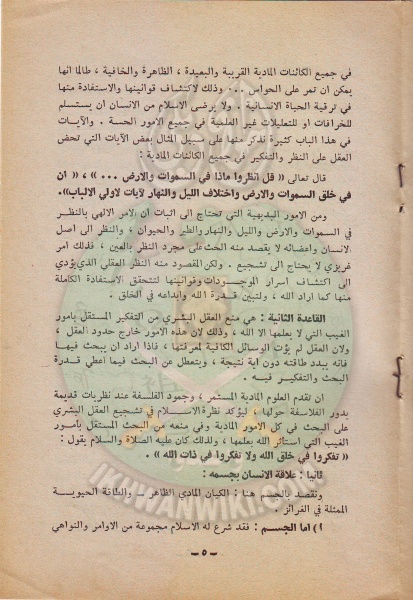 في جميع الكائنات المادية القريبة والبعيدة ، الظاهرة والخافية ، طالما انها
يمكن ان تمر على الحواس ... وذلك لاكتشاف قوانينها والاستفادة منها
في ترقية الحياة الانسانية . ولا يرضى الاسلام من الانسان ان يستسلم
للخرافات او للتعليلات غير العلمية في جميع الامور الحسة . والآيات
في هذا الباب كثيرة نذكر منها على سبيل المثال بعض الآيات التي تحض
العقل على النظر والتفكير في جميع الكائنات المادية :
قال تعالى « قل انظروا ماذا في السموات والارض ... » ، « ان
في خلق السموات والارض واختلاف الليل والنهار لآيات لاولي الالباب».
ومن الامور البديهية التي تحتاج الى اثبات ان الامر الالهي بالنظر
في السموات والارض والليل والنهار والطير والحيوان ، والنظر الى اصل
الانسان واعضائه لا يقصد منه الحث على مجرد النظر بالعين ، فذلك امر
غريزي لا يحتاج الى تشجيع . ولكن المقصود منه النظر العقلي الذي يؤدي
الى اكتشاف اسرار الموجودات وقوانينها لتتحقق الاستفادة الكاملة
منها كما اراد الله ، ولتبين قدرة الله وابداعه في الخلق .
القاعدة الثانية : هي منع العقل البشري من التفكير المستقل بامور
الغيب التي لا يعلمها الا الله ، وذلك لان هذه الامور خارج حدود العقل ،
ولان العقل لم يؤت الوسائل الكافية لمعرفتها ، فاذا اراد ان يبحث فيها
فانه يبدد طاقته دون اية نتيجة ، ويتعطل عن البحث فيما اعطي قدرة
البحث والتفكير فيه .
ان تقدم العلوم المادية المستمر ، وجمود الفلسفة عند نظريات قديمة
يدور الفلاسفة حولها ، ليؤكد نظرة الاسلام في تشجيع العقل البشري
على البحث في كل الامور المادية وفي منعه من البحث المستقل بأمور
الغيب التي استأثر الله بعلمها ، ولذلك كان عليه الصلاة والسلام يقول :
« تفكروا في خلق الله ولا تفكروا في ذات الله » .
ثانيا : علاقة الانسان بجسمه :
ونقصد بالجسم هنا : الكيان المادي الظاهر والطاقة الحيوية
الممثلة في الغرائز .
١) اما الجسم : فقد شرع له الاسلام مجموعة من الاوامر والنواهي
— ٥ —
IKHWANWIKI.COM